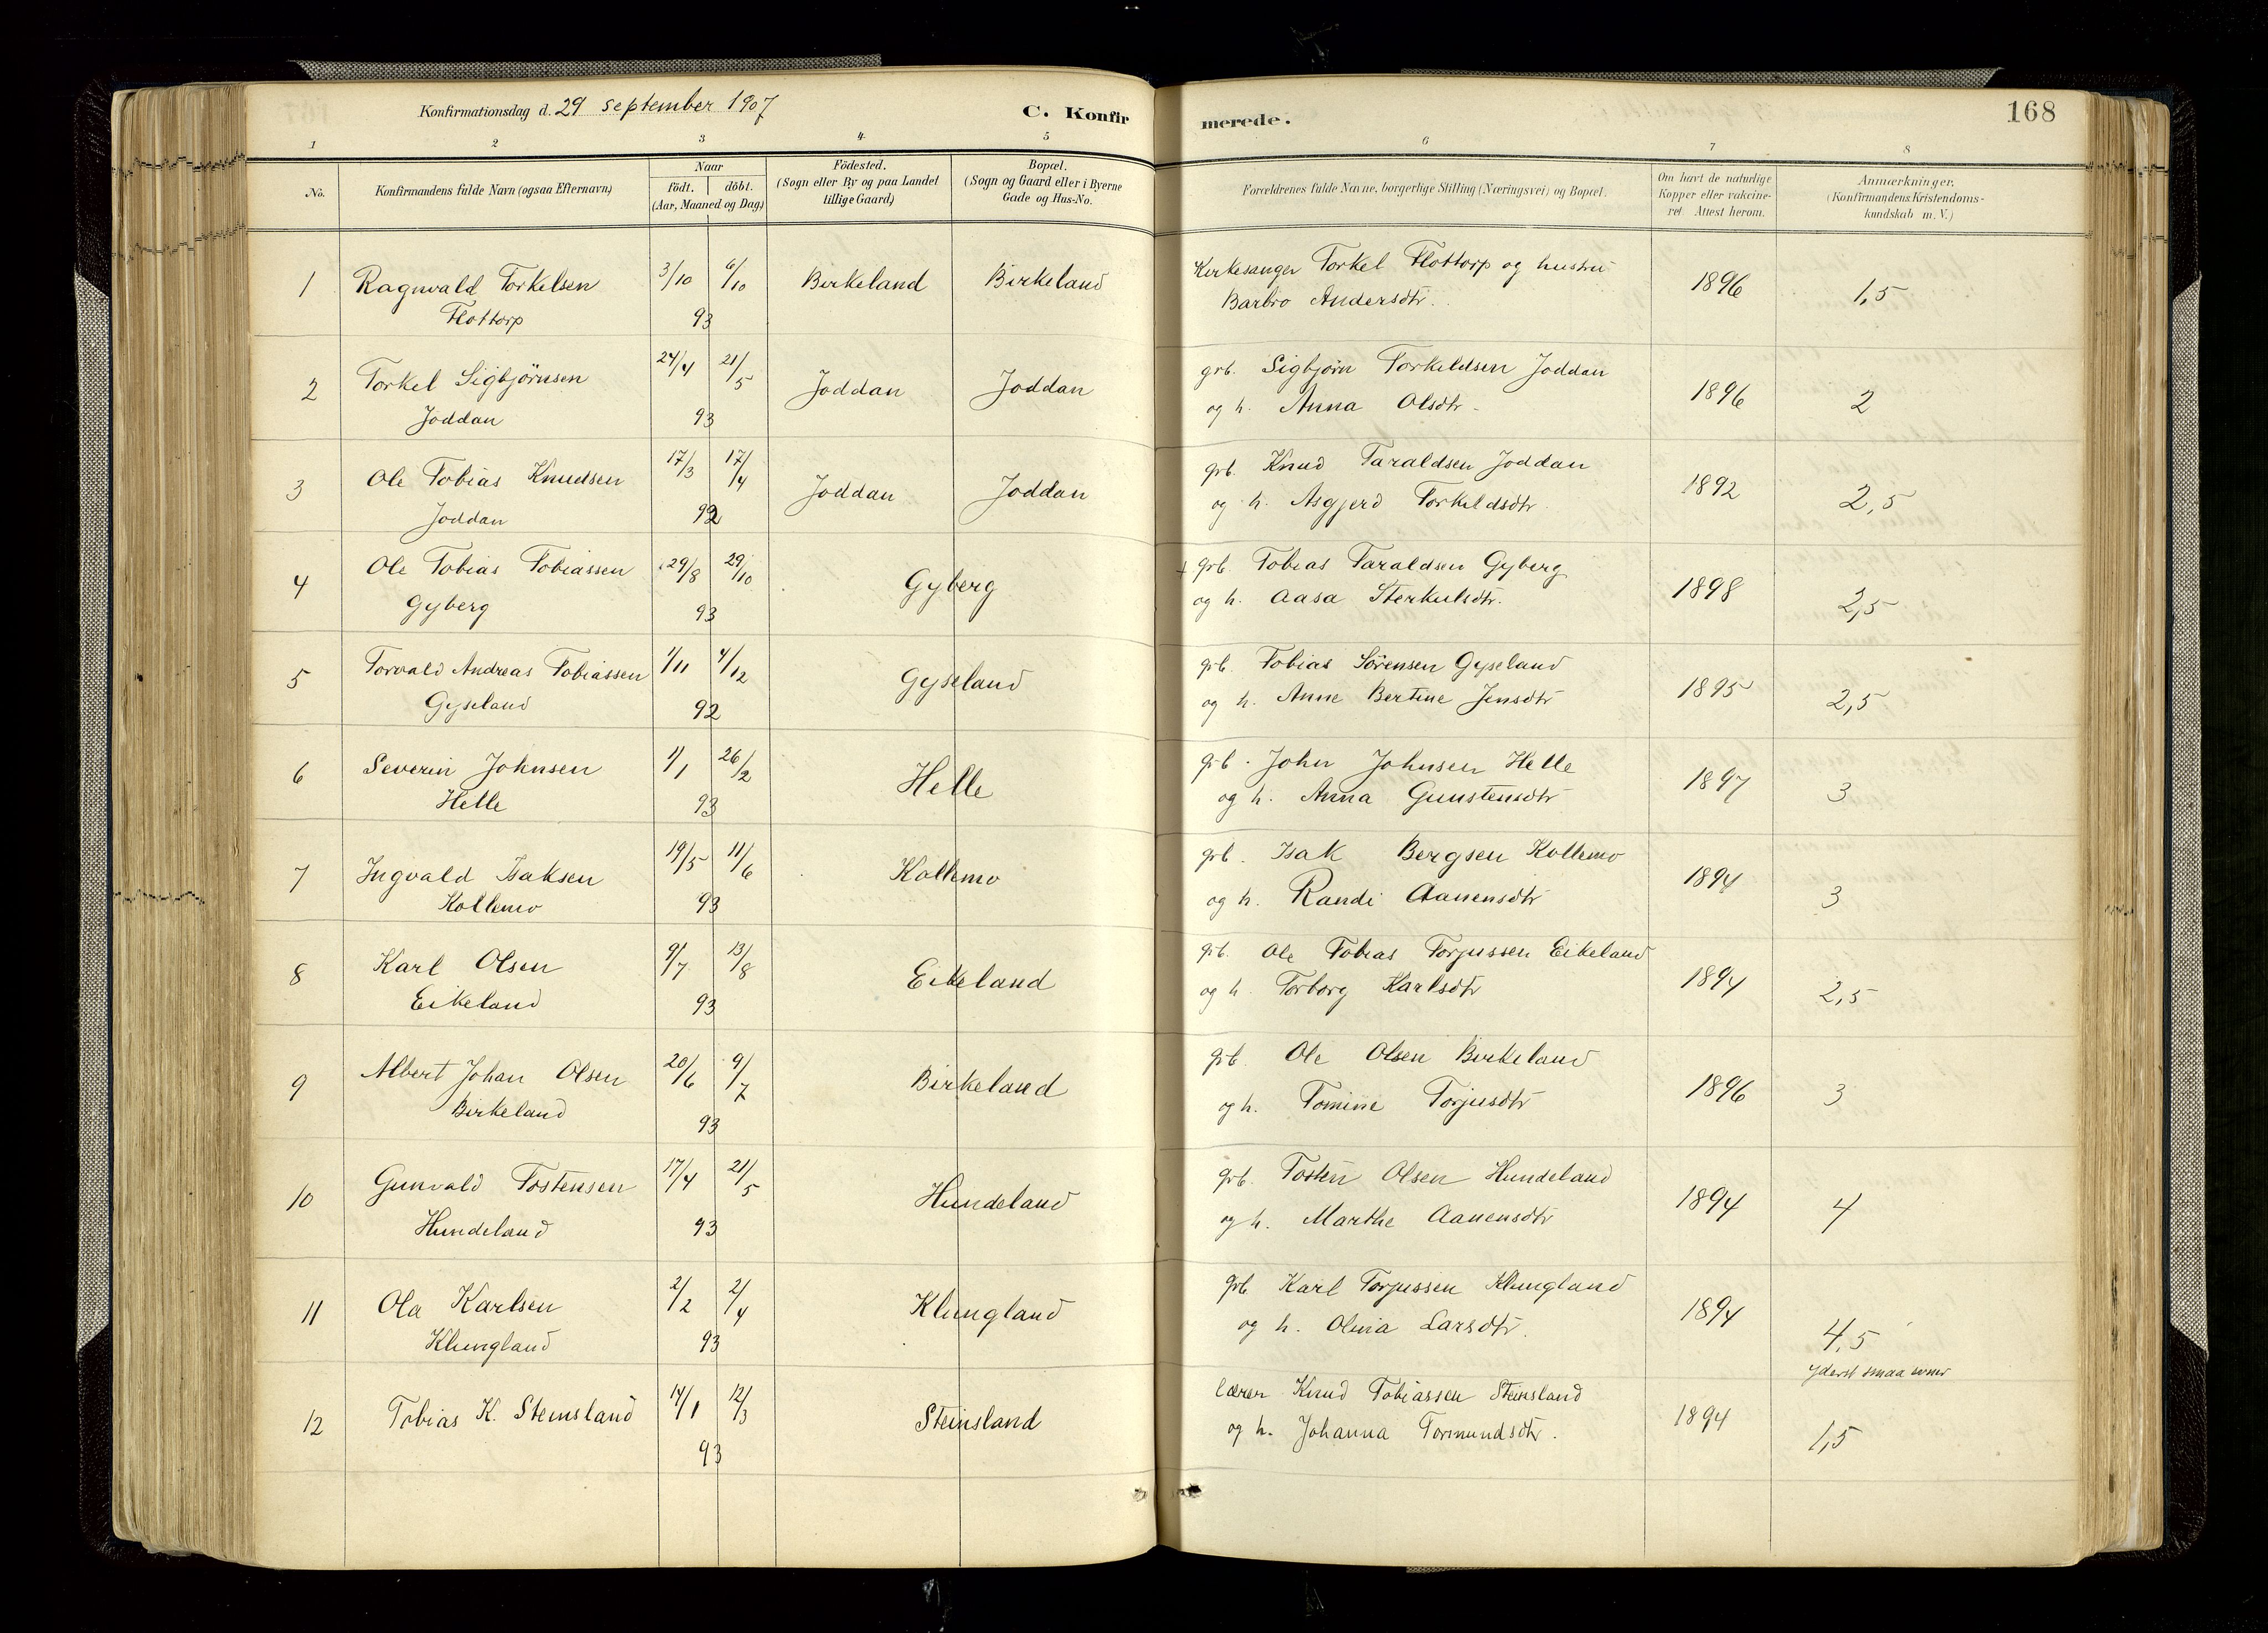 Konfirmationsdag d. 29 september 1907
C. Konfirmerede.
168
1 2 3 4 5 6 7 8
No.
Konfirmandens fulde Navn (ogsaa Efternavn)
Naar
födt. döbt.
(Aar, Maaned og Dag)
Födested.
(Sogn eller By og paa Landet
tillige Gaard)
Bopæl.
(Sogn og Gaard eller i Byerne
Gade og Hus-No.
Forældrenes fulde Navne, borgerlige Stilling (Næringsvei) og Bopæl.
Om havt de naturlige
Kopper eller vakcine-
ret. Attest herom.
Anmærkninger.
(Konfirmandens Kristendoms-
kundskab m. V.)
1 Ragnvald Torkelsen 3/10 6/10 Birkeland Birkeland Kirkesanger Torkel Flottorp og hustru 1896 1,5
Flottorp 93 Barbro Andersdtr.
2 Torkel Sigbjörnsen 24/4 21/5 Joddan Joddan grb. Sigbjörn Torkeldsen Joddan 1896 2
Joddan 93 og h. Anna Olsdtr.
3 Ole Tobias Knudsen 17/3 17/4 Joddan Joddan grb. Knud Taraldsen Joddan 1892 2,5
Joddan 92 og h. Asgjerd Torkeldsdtr.
4 Ole Tobias Tobiassen 29/8 29/10 Gyberg + grb. Tobias Taraldsen Gyberg 1898 2,5
Gyberg 93 og h. Aasa Sterkulsdtr.
5 Torvald Andreas Tobiassen 1/11 4/12 Gyseland grb. Tobias Sörensen Gyseland 1895 2,5
Gyseland 92 og h. Anne Bertine Jensdtr
6 Severin Johnsen 1/1 26/2 Helle grb. John Johnsen Helle 1897 3
Helle 93 og h. Anna Gunstensdtr
7 Ingvald Isaksen 19/5 11/6 Kollemo grb. Isak Bergsen Kollemo 1894 3
Kollemo 93 og h. Randi Aanensdtr
8 Karl Olsen 9/7 13/8 Eikeland grb. Ole Tobias Torjussen Eikeland 1894 2,5
Eikeland 93 og h. Torborg Karlsdtr
9 Albert Johan Olsen 20/6 9/7 Birkeland grb. Ole Olsen Birkeland 1896 3
Birkeland 93 og h. Tomine Torjusdtr
10 Gunvald Tostensen 17/4 21/5 Hundeland grb. Tosten Olsen Hundeland 1894 4
Hundeland 93 og h. Marthe Aanensdtr
11 Ola Karlsen 2/2 2/4 Klungland grb Karl Torjussen Klungland 1894 4,5
Klungland 93 og h. Olina Larsdtr. yderst smaa evner
12 Tobias K. Steinsland 14/1 12/3 Steinsland lærer Knud Tobiassen Steinsland 1894 1,5
93 og h. Johanna Tormundsdtr.